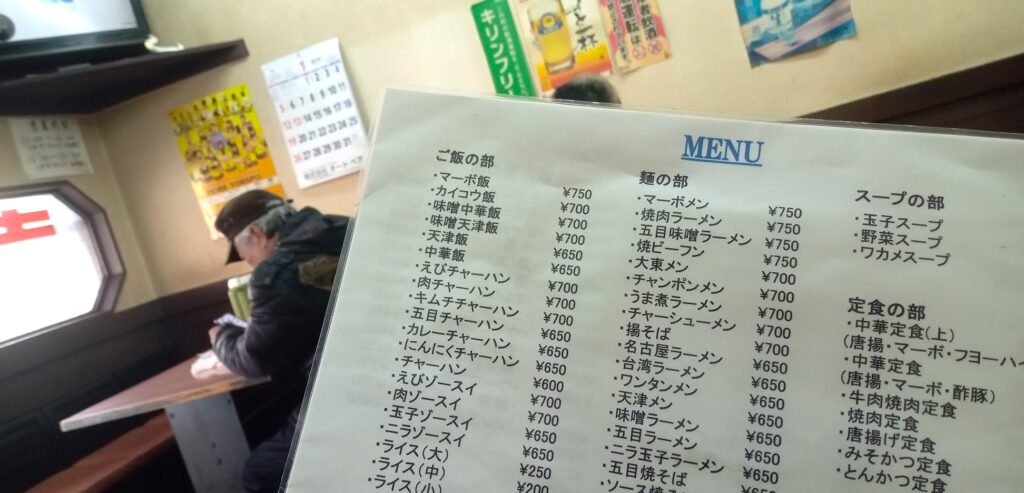 キリンフリー
1
MENU
ご飯の部
・マーボ飯 ¥750
・カイコウ飯 ¥700
・味噌中華飯 ¥700
・味噌天津飯 ¥700
・天津飯 ¥650
・中華飯 ¥650
・えびチャーハン ¥700
・肉チャーハン ¥700
・キムチチャーハン ¥700
・五目チャーハン ¥650
・カレーチャーハン ¥650
・にんにくチャーハン ¥650
・チャーハン ¥600
・えびゾースイ ¥700
・肉ゾースイ ¥700
・玉子ゾースイ ¥650
・ニラゾースイ ¥650
・ライス(大) ¥250
・ライス(中) ¥200
・ライス(小)
麺の部
・マーボメン ¥750
・焼肉ラーメン ¥750
・五目味噌ラーメン ¥750
・焼ビーフン ¥750
・大東メン ¥700
・チャンポンメン ¥700
・うま煮ラーメン ¥700
・チャーシューメン ¥700
・揚そば ¥700
・名古屋ラーメン ¥650
・台湾ラーメン ¥650
・ワンタンメン ¥650
・天津メン ¥650
・味噌ラーメン ¥650
・五目ラーメン ¥650
・ニラ玉子ラーメン ¥650
・五目焼そば
・ソース焼
スープの部
・玉子スープ
・野菜スープ
・ワカメスープ
定食の部
・中華定食(上)
(唐揚・マーボ・フヨーハイ
・中華定食
(唐揚・マーボ・酢豚)
・牛肉焼肉定食
・焼肉定食
・唐揚げ定食
・みそかつ定食
・とんかつ定食